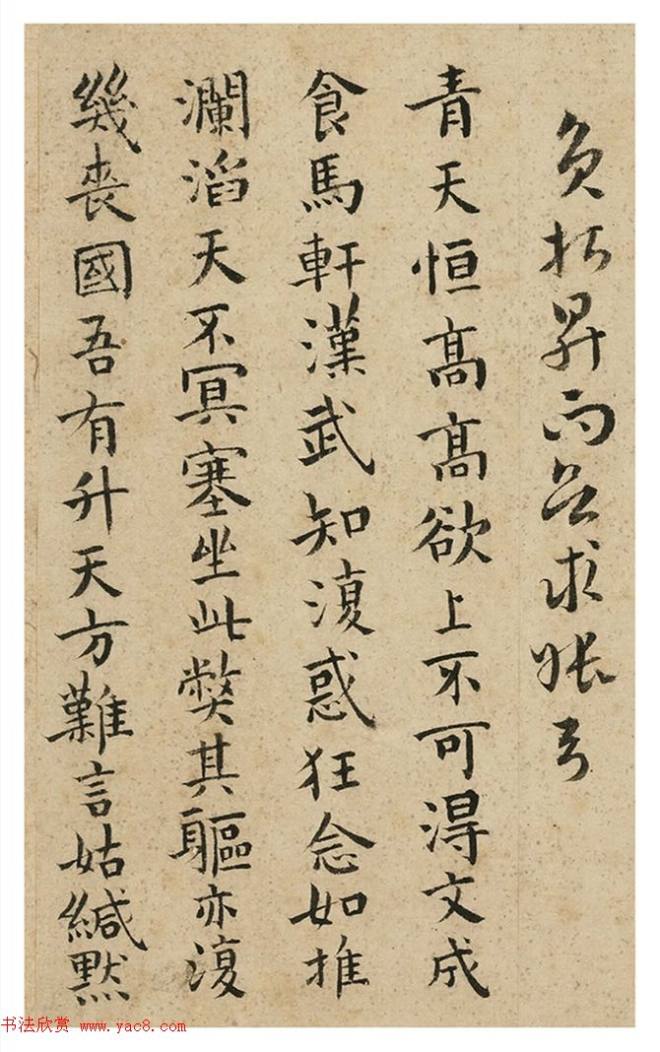 負昇而求
青天恒高高欲上不可得文成
食馬軒漢武知復惑狂念如推
瀾滔天不冥塞坐此獘其軀亦復
幾喪國吾有升天方難言姑緘默
书法欣赏 www.yac8.com